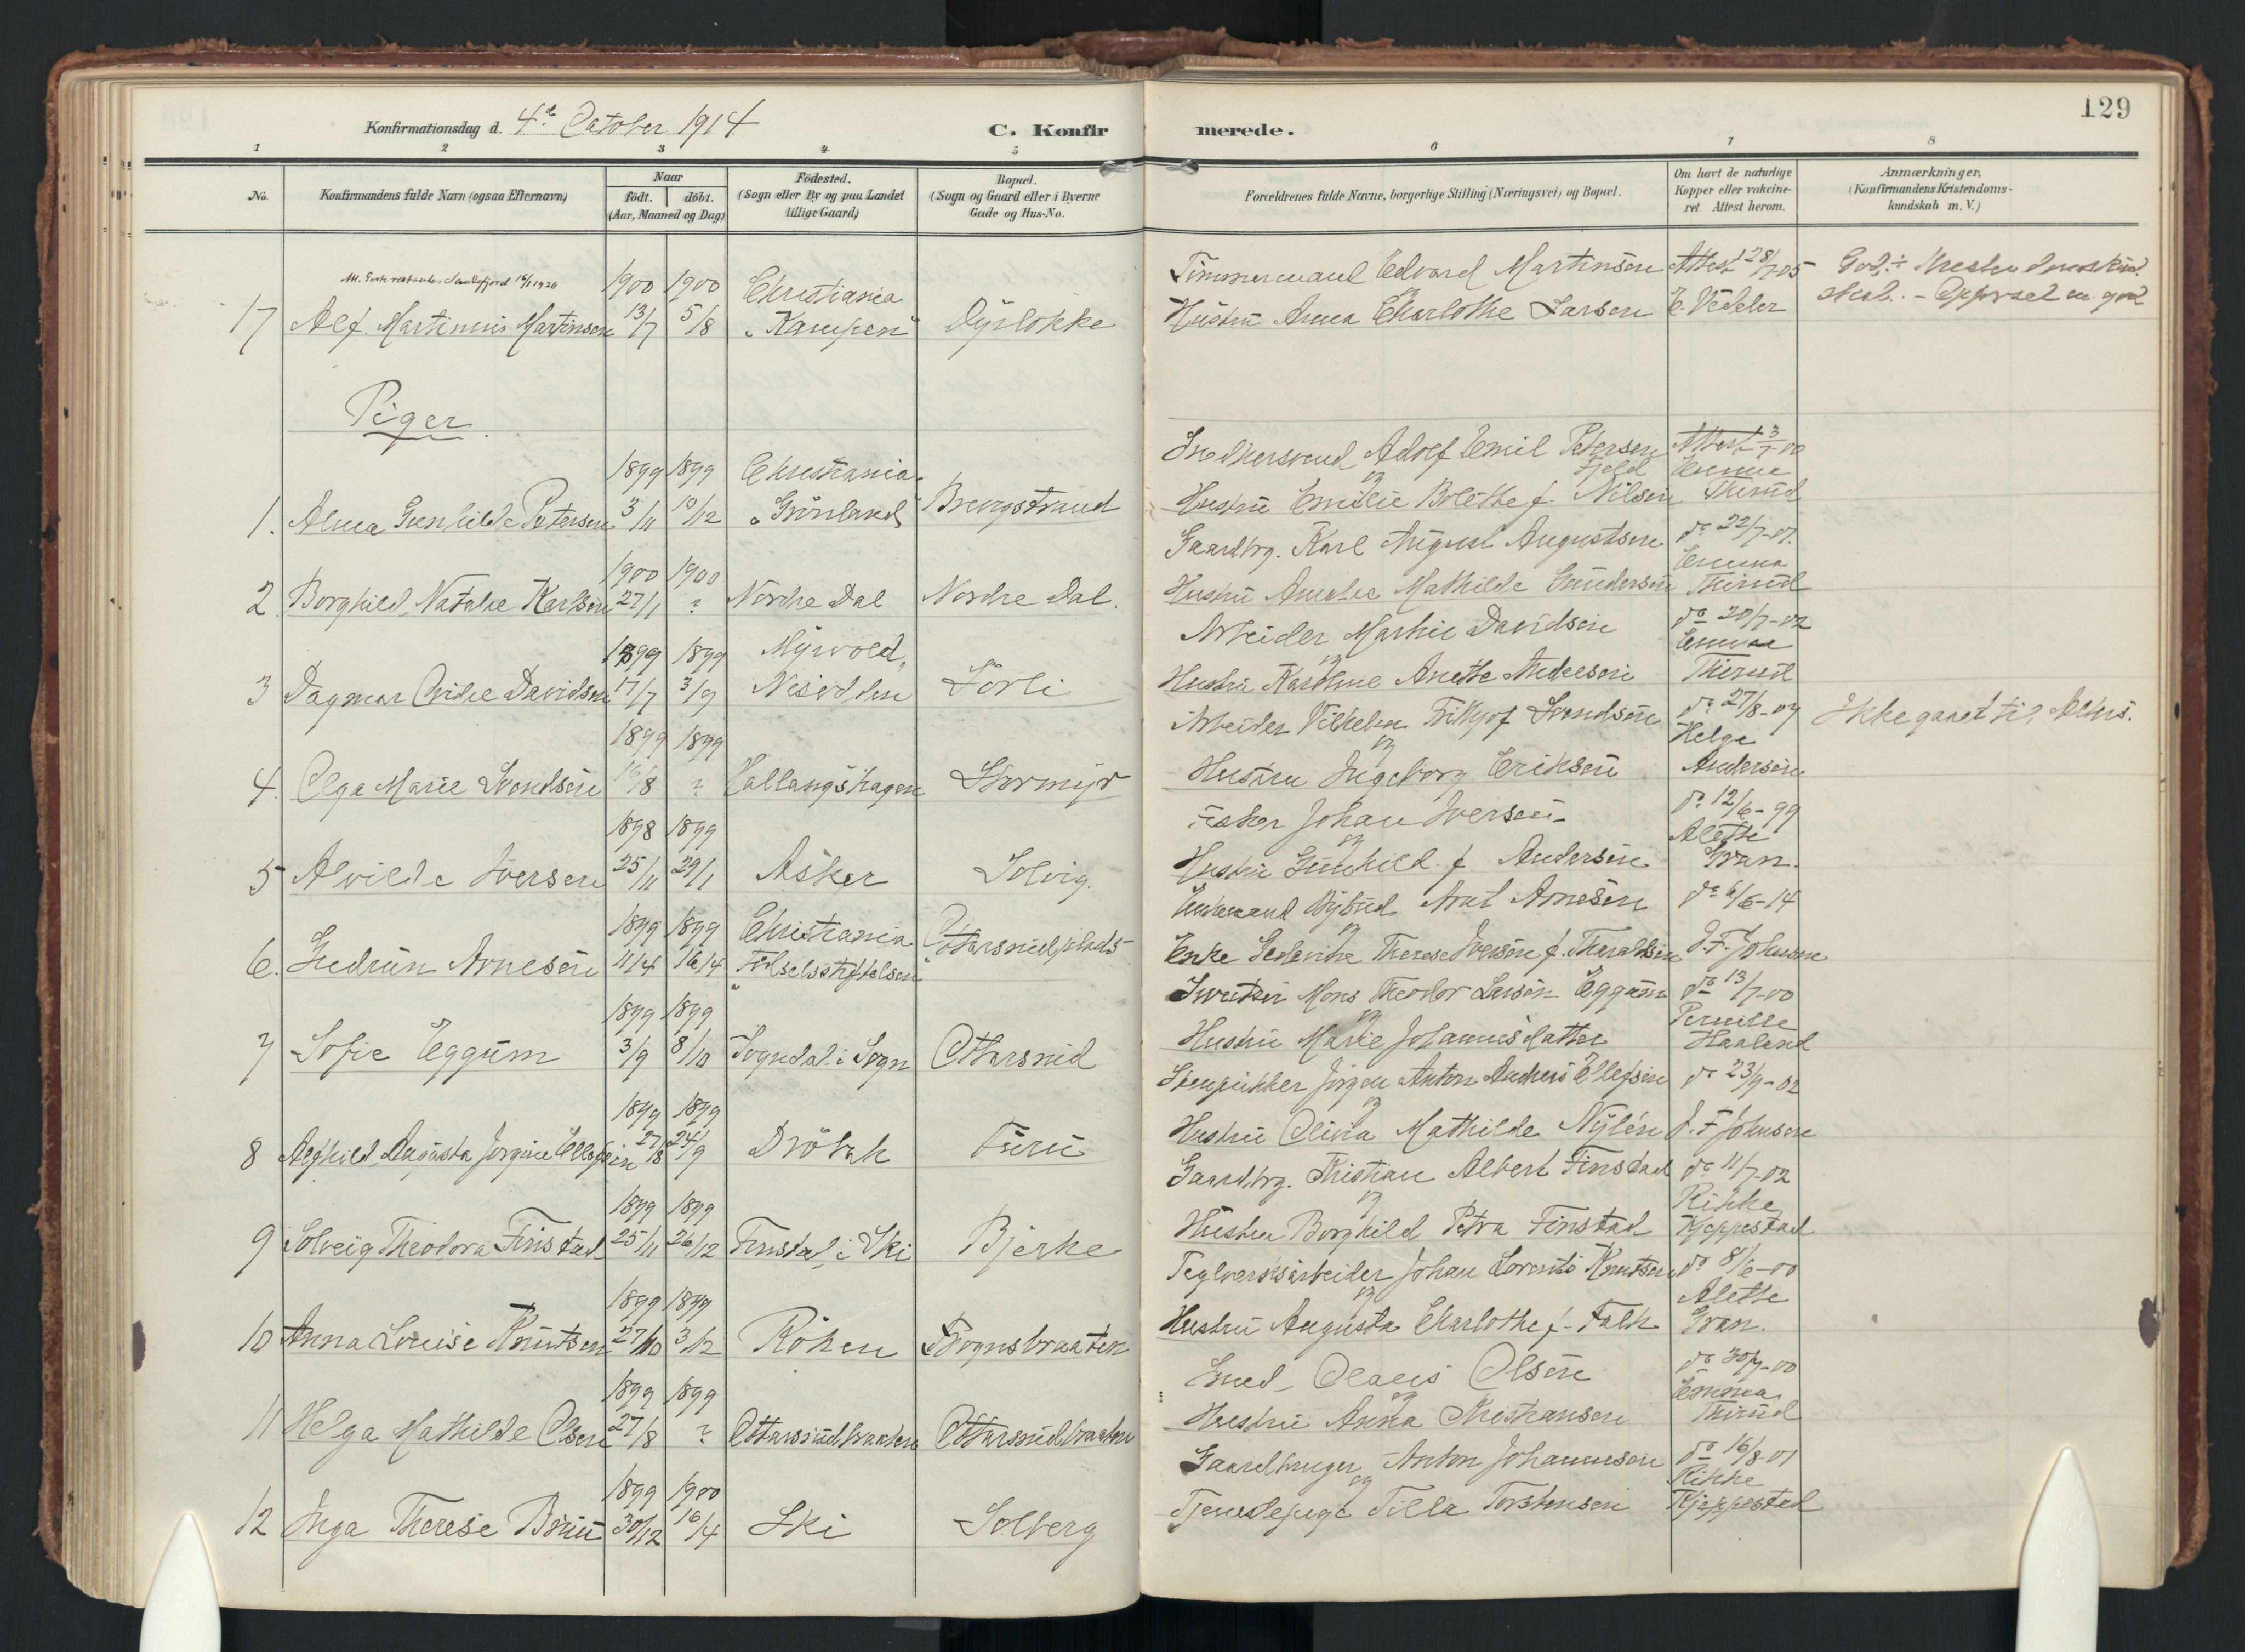 129
Konfirmationsdag d. 4de October 1914
C. Konfirmerede.
1 2 3 4 5 6 7 8
No.
Konfirmandens fulde Navn (ogsaa Efternavn)
Naar
födt. döbt.
(Aar, Maaned og Dag)
Födested.
(Sogn eller By og paa Landet
tillige Gaard)
Bopæl.
(Sogn og Gaard eller i Byerne
Gade og Hus-No.
Forældrenes fulde Navne, borgerlige Stilling (Næringsvei) og Bopæl.
Om havt de naturlige
Kopper eller vakcine-
ret Attest herom.
Anmærkninger.
(Konfirmandens Kristendoms-
kundskab m. V.)
1900 1900 Christiania Timmermand Edvard Martinsen Attest 28/7-05
17 Alf Martinius Martinsen 13/7 5/8 "Kampen" Dyrløkke Hustru Anna Charlothe Larsen E. Vedeler
Piger
1899 1899 Christiania Snedkersvend Adolf Emil Petersen Attest 3/7-00
Fjeld Emma
1. Alma Gunhilde Petersen 3/11 10/12 "Grönland" Brevigstrand Hustru Emilie Bolethe f. Nilsen Thirud
Gaardbrg. Karl August Augustsen do 22/7-01.
1900 1900 Emma
2 Borghild Natalie Karlsen 27/1 ? Nordre Dal Nordre Dal. Hustru Amalie Mathilde Gundersen Thirud
Arbeider Martin Davidsen do 20/7-02
1899 1899 Myrvold, Emma
3 Dagmar Davidsen 17/7 3/9 Nesodden Sørli Hustru Karoline Anette Andersen Thirud
Arbeider Vilhelm Frithjof Svendsen do 27/8-07 Ikke gaaet til Alters.
1899 1899 og Helga
4. Olga Marie Svendsen 16/8 ? Hallangshagen Stormyr Hustru Ingeborg Eriksen Andersen
Fisker Johan Iversen do 12/6-99
1898 1899 og Alette
5 Alvilde Iversen 25/11 29/1 Asker Solvig. Hustru Gunhild f. Andersen Gran.
Arnt Arnesen do 6/6-14
1899 1899 Christiania Ottarsrudplads
6. Gudrun Arnesen 11/4 16/4 Födselsstiftelsen Enke Therese Iversen f. Tharaldsen J. F. Johnsen
Sveitser Mons Theodor Larsen Eggum do 13/7-00
1899 1899 og Pernille
7 Sofie Eggum 3/9 8/10 Sogndal i Sogn Ottarsrud Hustru Marie Johannesdatter Haaland
Stenpikker Jörgen Anton Anders Ellefsen do 23/9-02
1899 1899 og
8 Alfhild Augusta Jørgine Ellefsen 27/8 24/9 Dröbak Furu Hustru Olivia Mathilde Nylén J. F. Johnsen
Gaardbrg. Kristian Albert Finstad do 11/7-02
1899 1899 og Rikke
9 Solveig Theodora Finstad 25/11 26/12 Finstad i Ski Bjerke Hustru Borghild Petra Finstad Kjeppestad
Teglverksarbeider Johan Lorents Knutsen do 8/6-00
1899 1899 og Alette
10 Anna Louise Knutsen 27/10 3/12 Röken Sognsbraaten Hustru Augusta Charlothe f. Falk Gran.
Smed Olaus Olsen do 30/7-00
1899 1899 og Emma
11 Helga Mathilde Olsen 27/8 ? Ottarsrudbraaten Ottarsrudbraaten Hustru Anna Kristiansen Thirud
Gaardbruger Anton Johannesen do 16/8-01
1899 1900 og Rikke
12 Inga Therese Bruu 30/12 16/4 Ski Solberg Tjenestepige Tilla Torstensen Kjeppestad